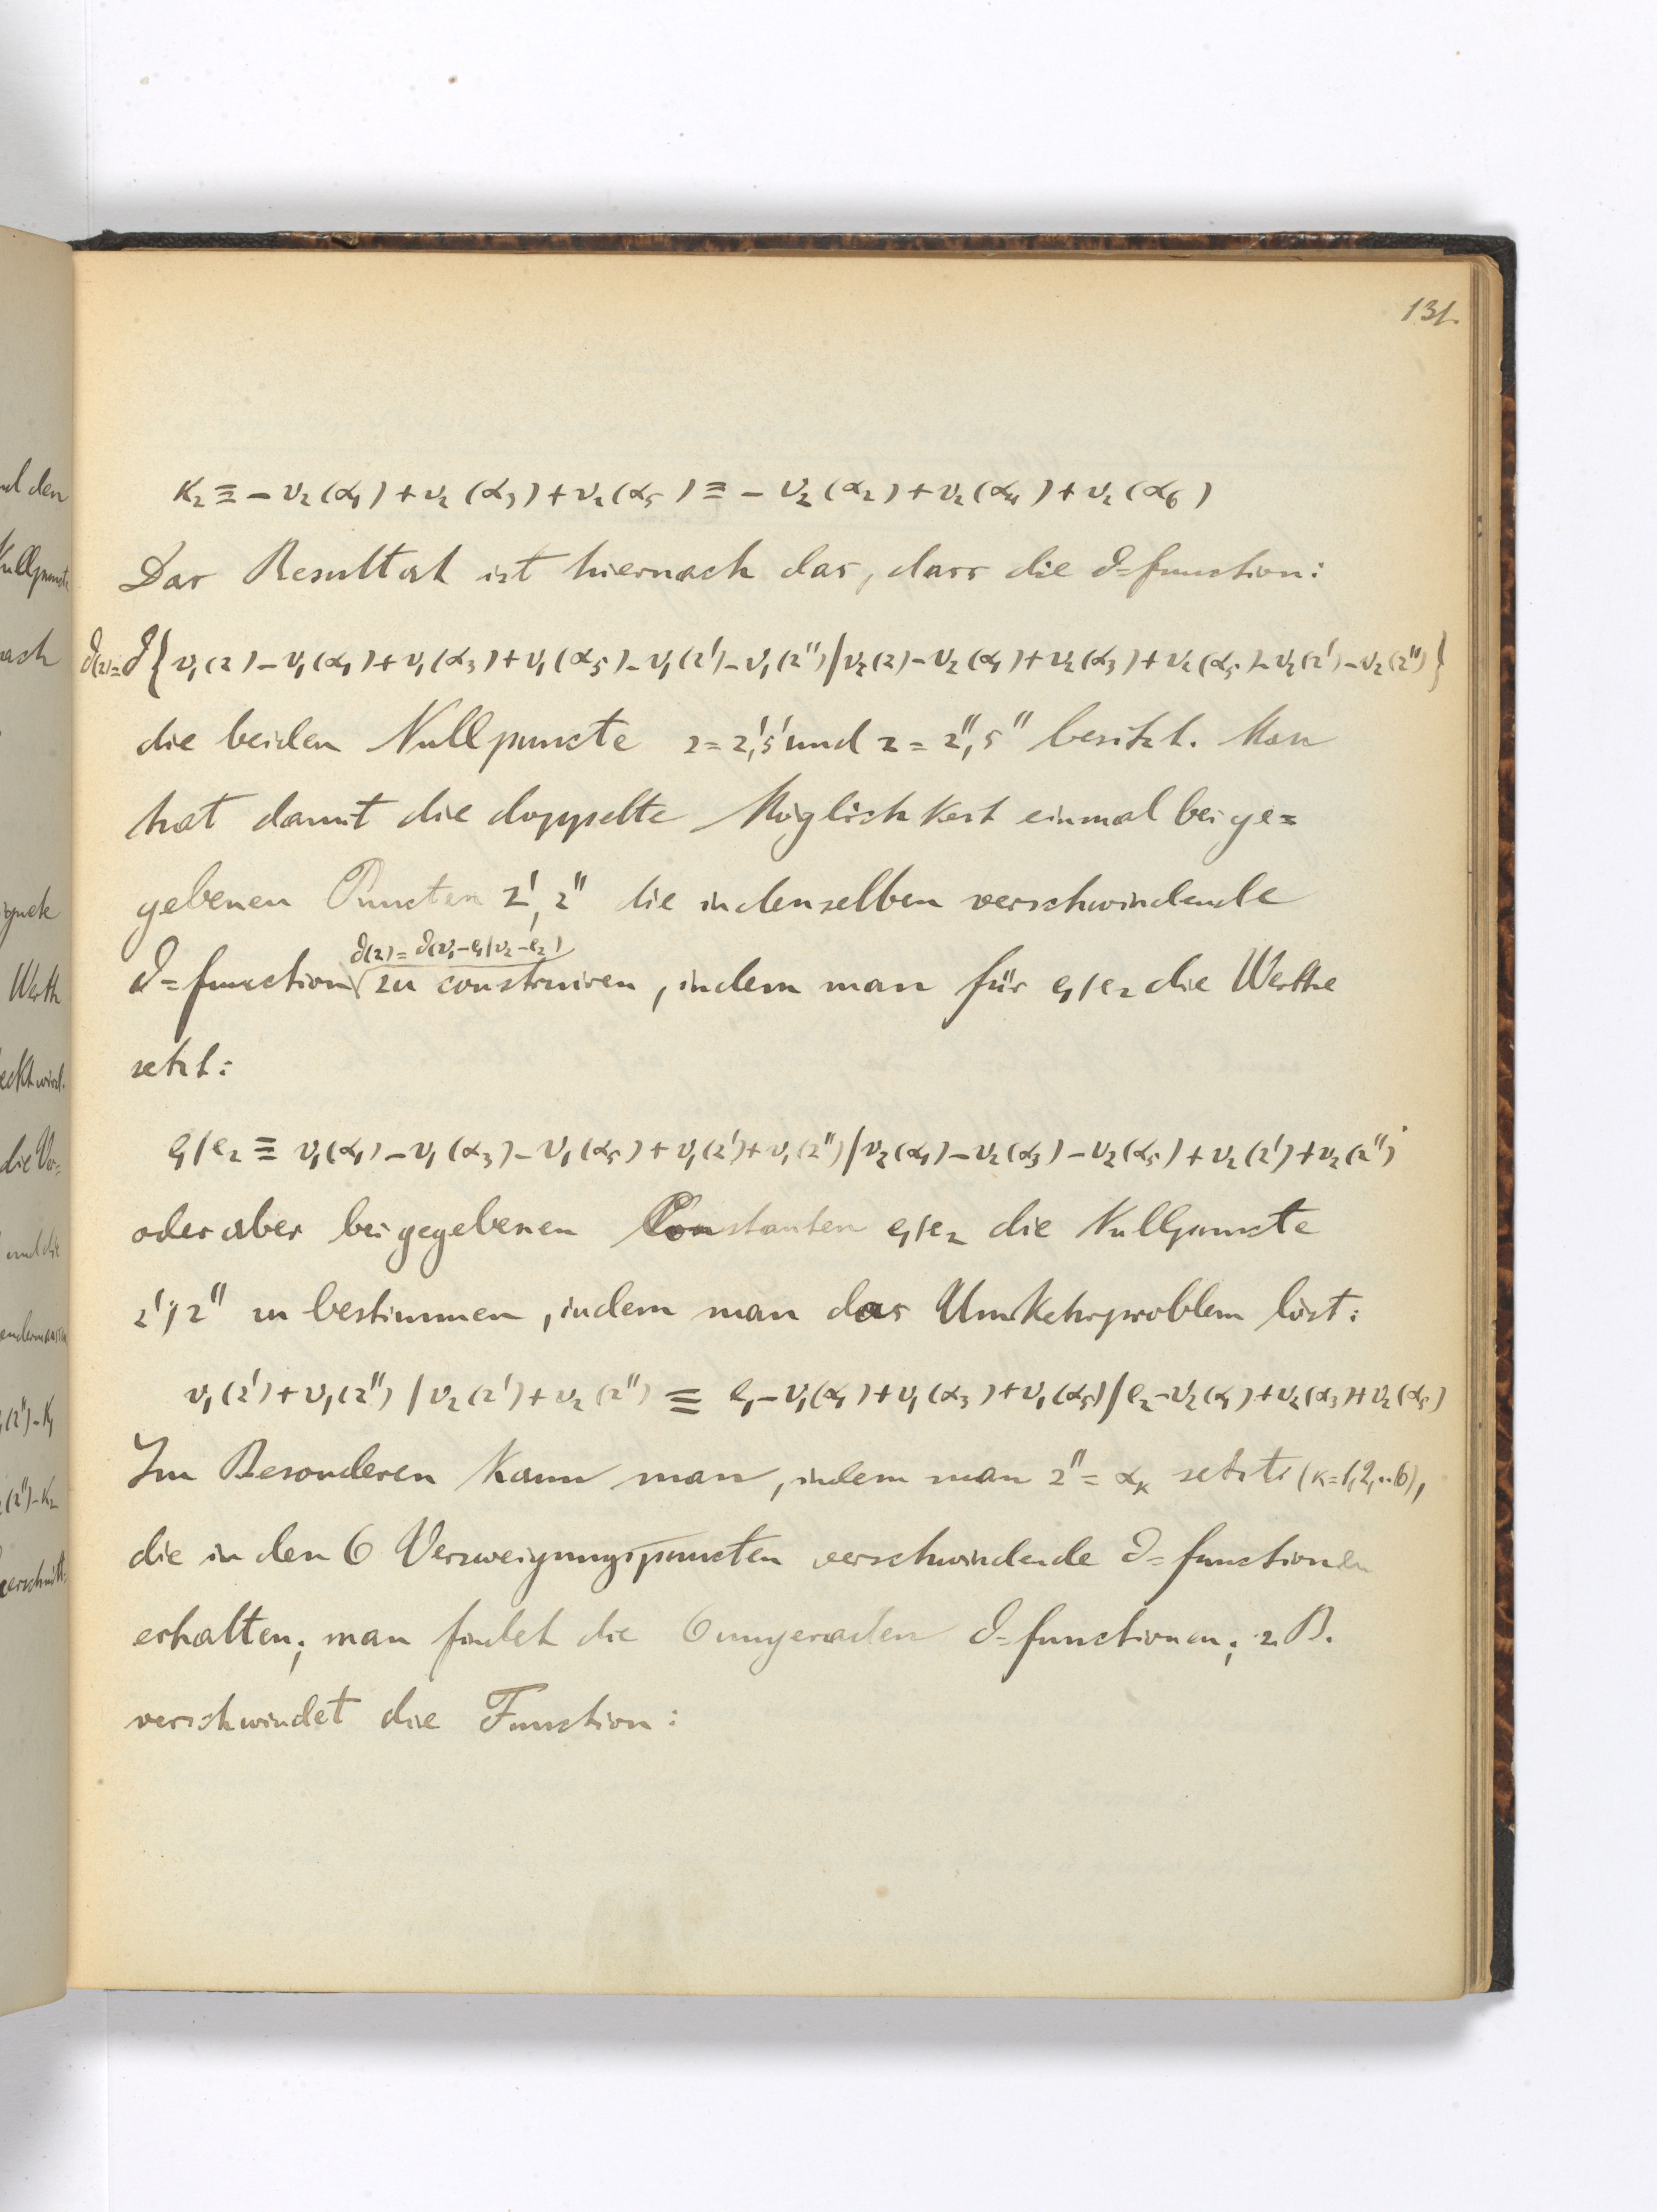 131.
K₂ ≡ − v₂(α₁) + v₂(α₃) + v₂(α₅) ≡ − v₂(α₂) + v₂(α₄) + v₂(α₆)
Das Resultat ist hiernach das, dass die ϑ=function:
ϑ(z)=ϑ{v₁(z) − v₁(α₁) + v₁(α₃) + v₁(α₅) − v₁(z′) − v₁(z″) / v₂(z) − v₂(α₁) + v₂(α₃) + v₂(α₅) − v₂(z′) − v₂(z″)}
die beiden Nullpuncte z = z′,s′ und z = z″,s″ besitzt. Man
hat damit die doppelte Möglichkeit einmal bei ge=
gebenen Puncten z′, z″ die in denselben verschwindende
ϑ(z) = ϑ(v₁−e₁/v₂−e₂)
ϑ=function zu construiren, indem man für e₁/e₂ die Werthe
setzt:
e₁/e₂ ≡ v₁(α₁) − v₁(α₃) − v₁(α₅) + v₁(z′) + v₁(z″) / v₂(α₁) − v₂(α₃) − v₂(α₅) + v₂(z′) + v₂(z″)
oder aber bei gegebenen Constanten e₁/e₂ die Nullpuncte
z′, z″ zu bestimmen, indem man das Umkehrproblem löst:
v₁(z′) + v₁(z″) / v₂(z′) + v₂(z″) ≡ e₁ − v₁(α₁) + v₁(α₃) + v₁(α₅) / e₂ − v₂(α₁) + v₂(α₃) + v₂(α₅)
Im Besonderen kann man, indem man z″ = αₖ setzt: (κ=1,2,..6),
die in den 6 Verzweigungspuncten verschwindende ϑ=functionen
erhalten; man findet die 6 ungeraden ϑ=functionen; z.B.
verschwindet die Function:
nd den
Nullpuncte
nach
Werth
eckt wird.
die Ver=
und die
(z″)−K₁
(z″)−K₂